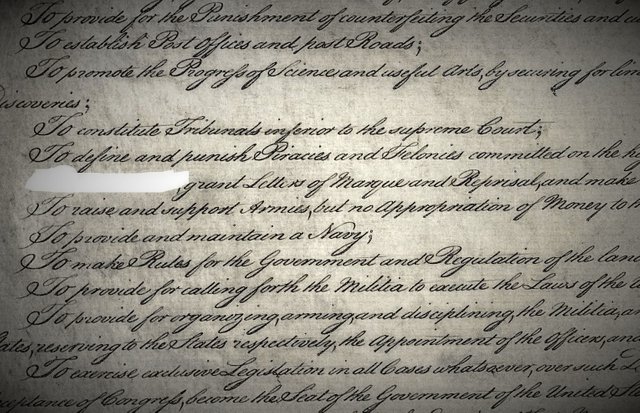 To provide for the Punishment of counterfeiting the Securities and
To establish Post Offices and post Roads;
To promote the Progreſs of Science and useful Arts, by securing for lim
Discoveries;
To constitute Tribunals inferior to the supreme Court;
To define and punish Piracies and Felonies committed on the
, grant Letters of Marque and Reprisal, and make
To raise and support Armies, but no Appropriation of Money to
To provide and maintain a Navy;
To make Rules for the Government and Regulation of the land
To provide for calling forth the Militia to execute the Laws of the
To provide for organizing, arming, and disciplining, the Militia, an
ates, reserving to the States respectively, the Appointment of the Officers, and
To exercise exclusive Legislation in all Cases whatsoever, over such
ceptance of Congreſs, become the Seat of the Government of the United Stat